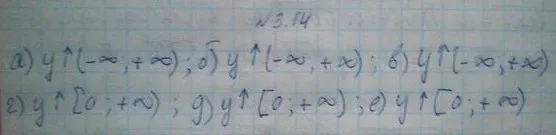 №3.14
а) y↑(-∞,+∞); б) y↑(-∞,+∞); в) y↑(-∞,+∞)
г) y↑[0;+∞); д) y↑[0;+∞); е) y↑[0;+∞)